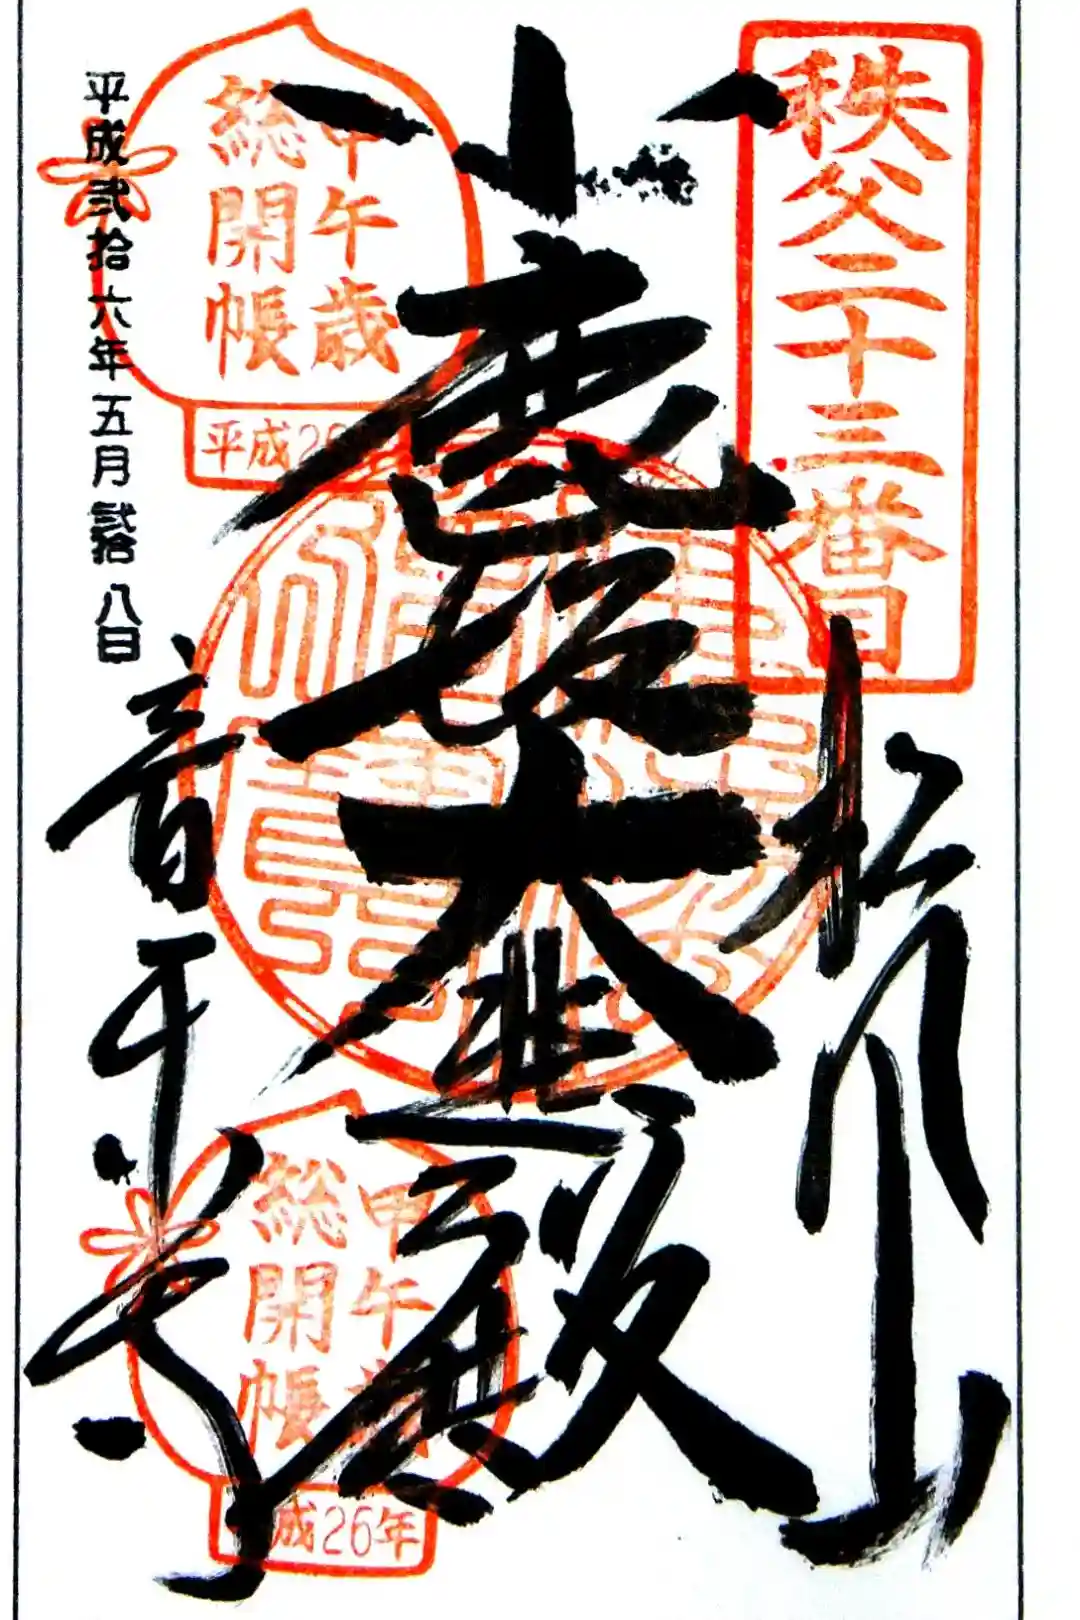 秩父二十三番
松風山
小鹿坂大悲殿
甲午歳
総開帳
平成2
甲午歳
総開帳
平成26年
平成弐拾六年五月弐拾八日
音楽寺